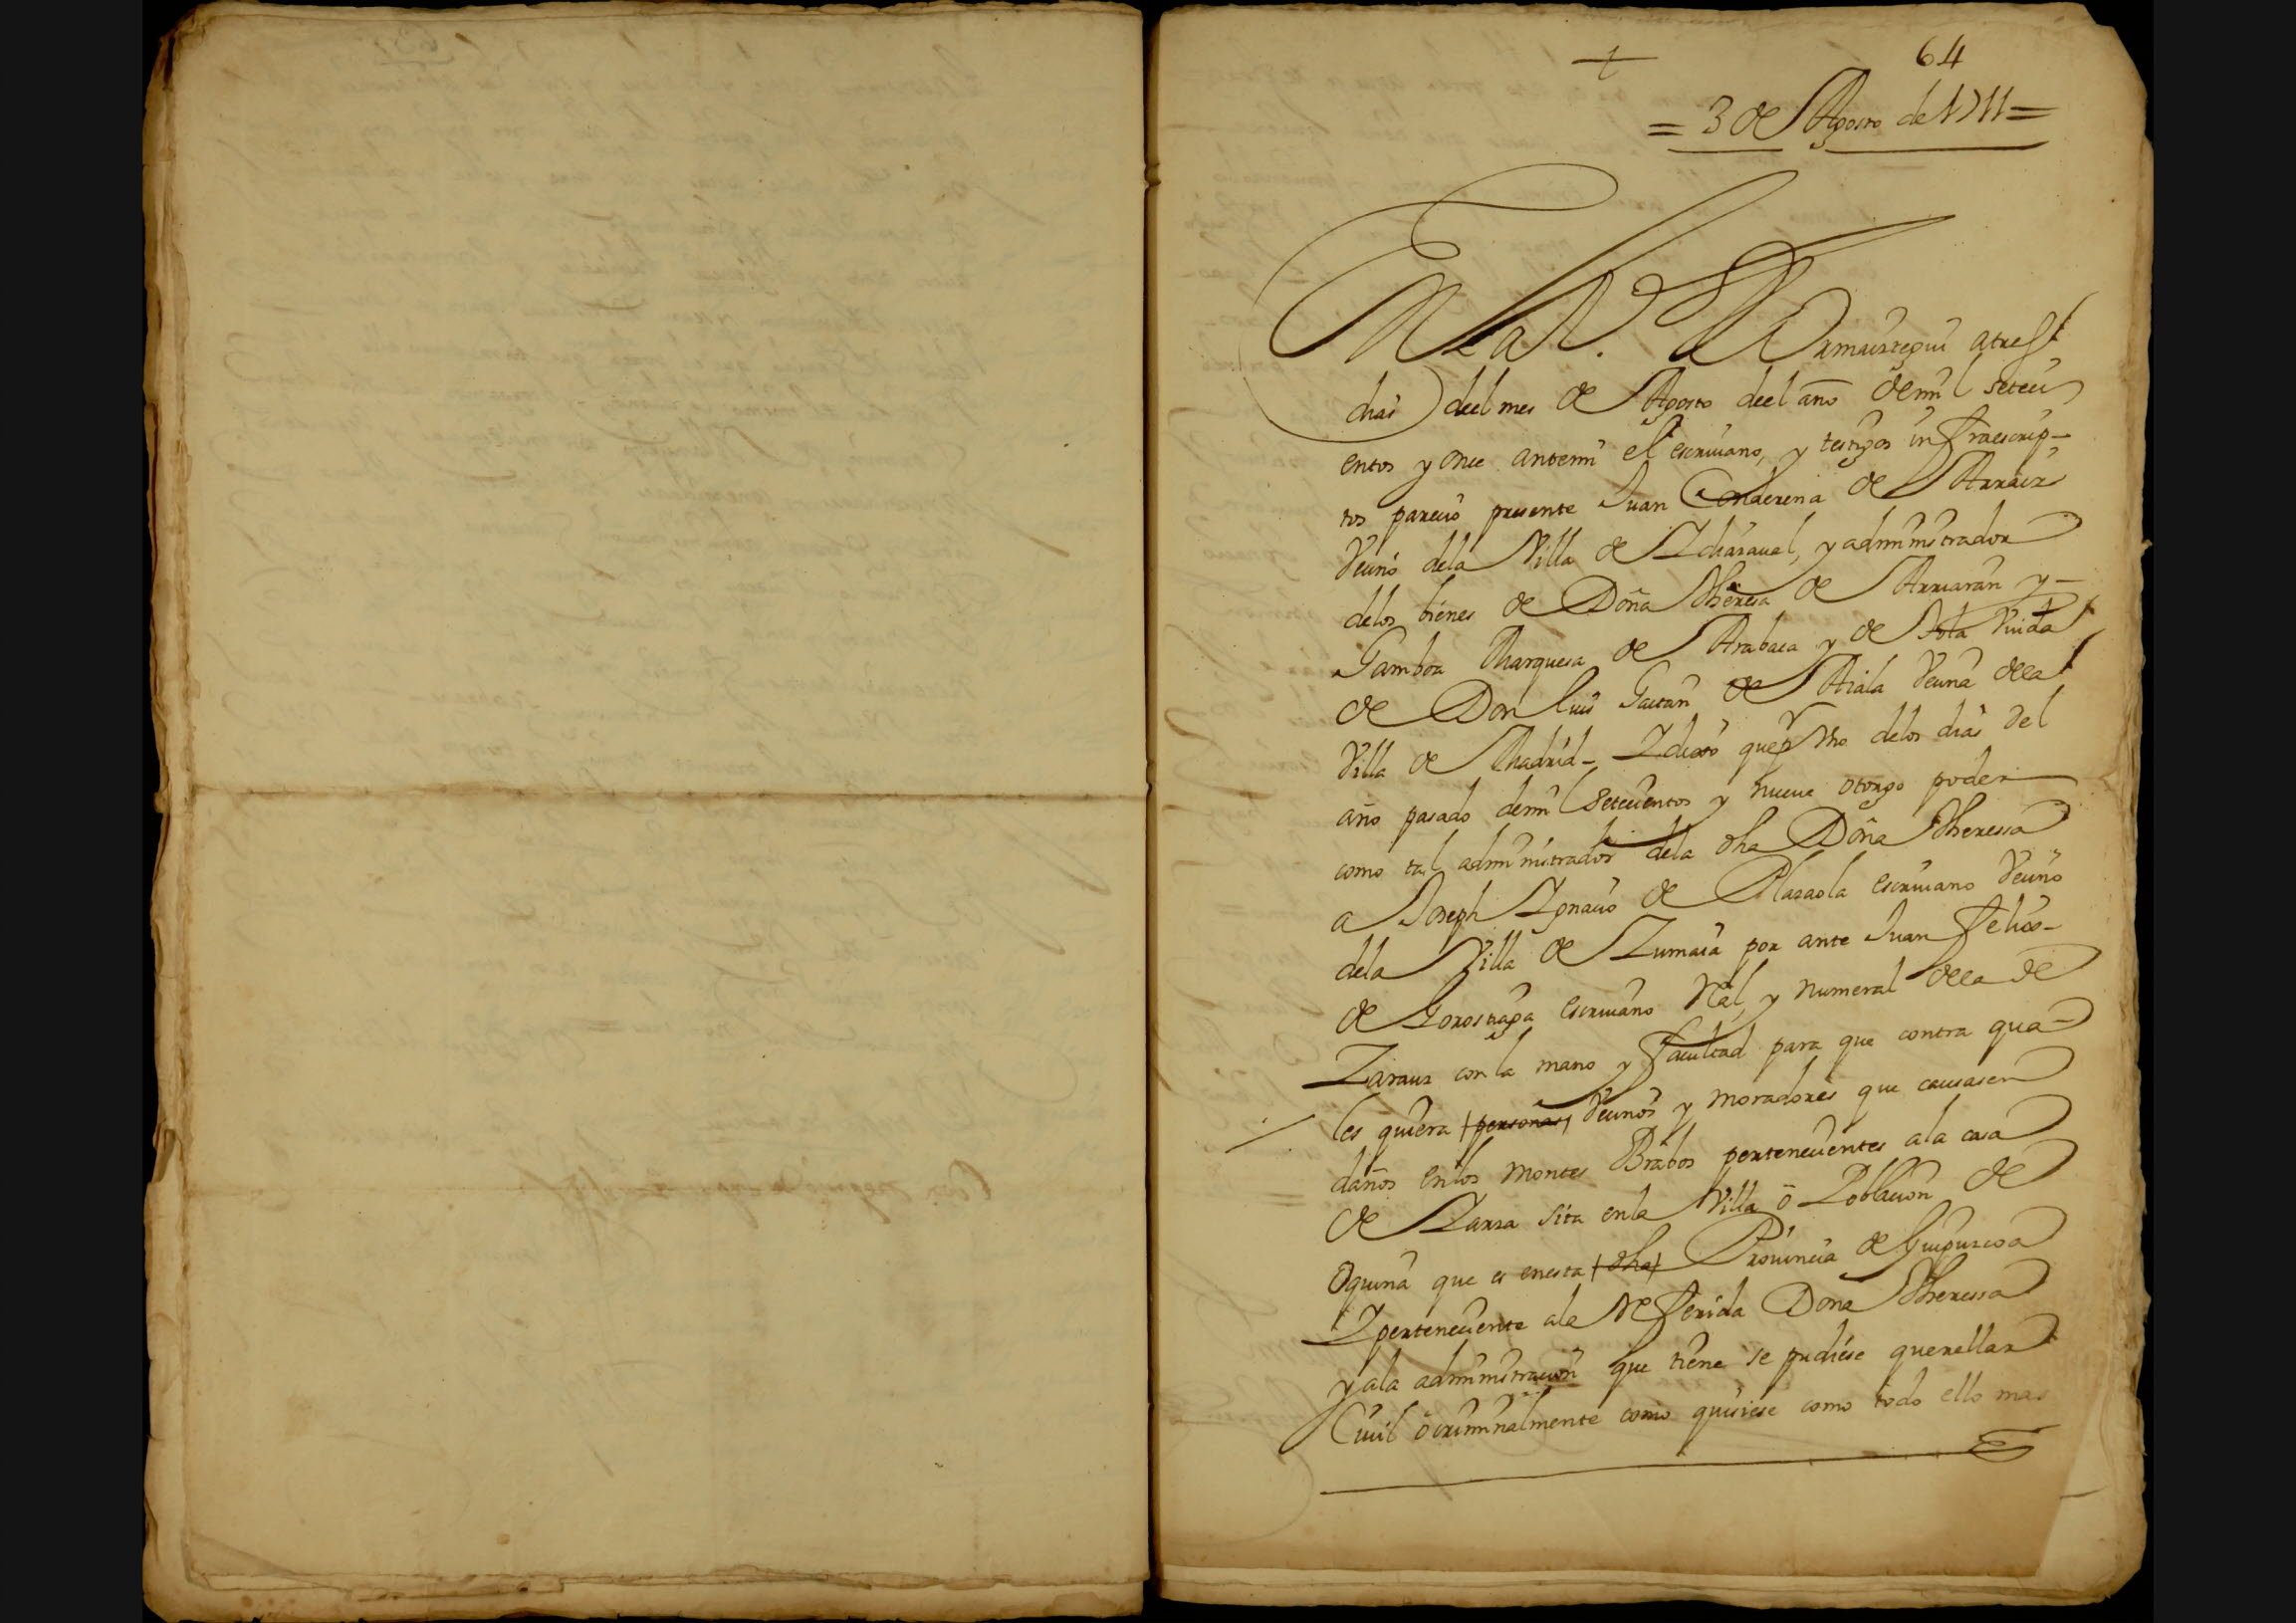 +
64
= 3 de Agosto de 1711 =
En la V.ª de Ormaiztegui a tres
dias del mes de Agosto deel año de mil seteci
entos y once ante mi el escriuano, y testigos infraescrip-
tos parecio presente Juan de Arraiz
Vecino dela Villa de Ydiazaual, y administrador
delos bienes de Doña Theresa de Arriaran y
Gamboa Marquesa de Arabaca y de Viuda
de Don Luis Gaitan de Aiala Vecina della
Villa de Madrid - Y dixo que por Vno delos dias del
año pasado de mil Setecientos y nueue otorgo poder
como tal administrador dela dha Doña Theressa
a Joseph Ygnacio de Plazaola escriuano Vecino
dela Villa de Zumaia por ante Juan Felix
de Gorostiaga escriuano Rāl, y numeral della de
Zarauz con la mano y facultad para que contra qua-
les quiera personas Vecinos y moradores que causasen
daños en los montes Brabos pertenecientes ala casa
de Yarza sita en la Villa ô Poblacion de
Oquina que es en esta dha Prouincia de Guipuzcoa
Y perteneciente ala Referida Dona Theressa
y ala administracion que tiene se pudiese querellar
Ciuil ô criminalmente como quisiese como todo ello mas